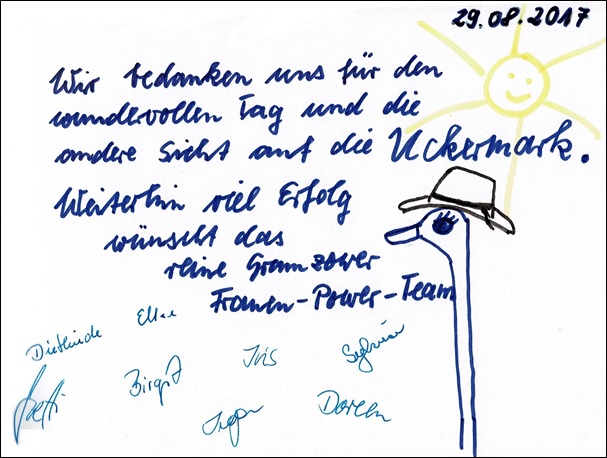 29.08.2017
Wir bedanken uns für den
wundervollen Tag und die
andere Sicht auf die Uckermark.
Weiterhin viel Erfolg
wünscht das
reine Gramzower
Frauen-Power-Team
Dietlinde Elke
Birgit Iris Sylvia
Doreen